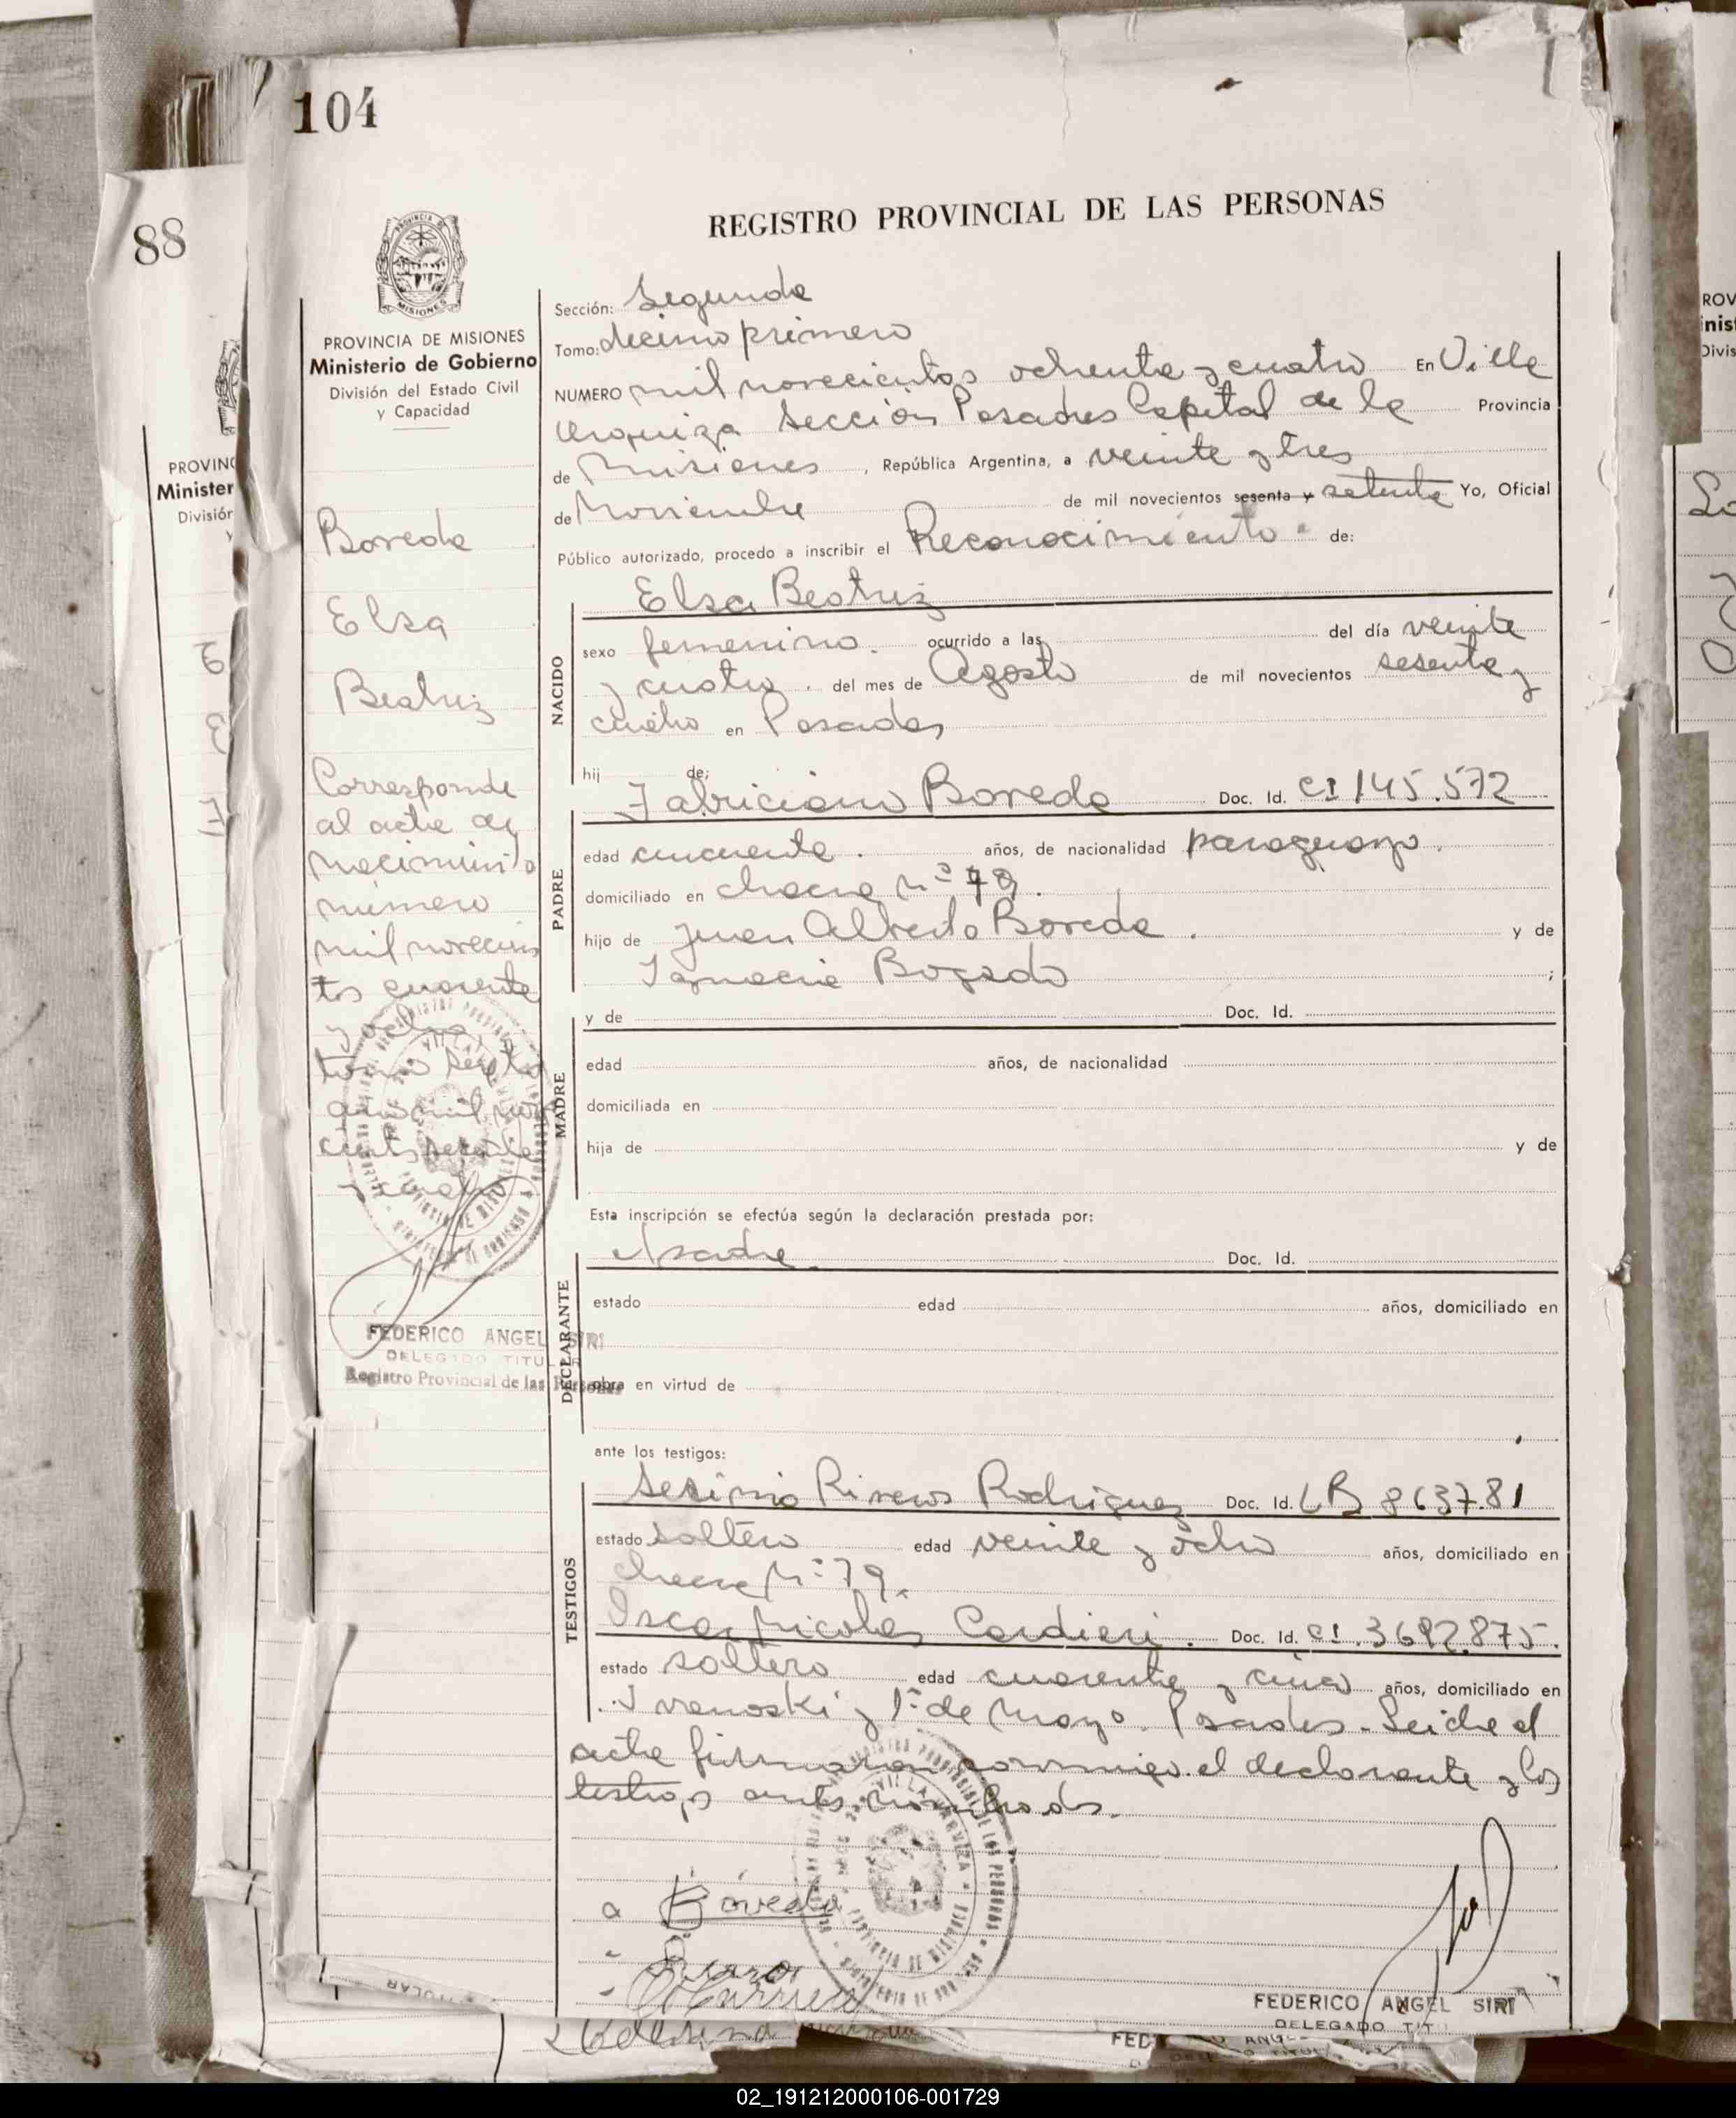 104
88
REGISTRO PROVINCIAL DE LAS PERSONAS
PROVINCIA DE MISIONES
Ministerio de Gobierno
División del Estado Civil
y Capacidad
Boveda
Elsa
Beatriz
Corresponde
al acta de
nacimiento
número
mil novecien
tos cuarenta
y ocho
tomo septo
año mil nove
cientos sesenta
y cuatro
FEDERICO ANGEL SIRI
DELEGADO TITULAR
Registro Provincial de las Personas
Sección: Segunda
Tomo: decimo primero
NUMERO mil novecientos ochenta y cuatro En Villa
Urquiza Sección Posadas Capital de la Provincia
de Misiones, República Argentina, a veinte y tres
de Noviembre de mil novecientos sesenta y setenta Yo, Oficial
Público autorizado, procedo a inscribir el Reconocimiento de:
NACIDO
Elsa Beatriz
sexo femenino. ocurrido a las del día veinte
y cuatro. del mes de Agosto de mil novecientos sesenta y
cuatro en Posadas
hij de:
PADRE
Fabriciano Boveda Doc. Id. CI 145.572
edad cincuenta. años, de nacionalidad paraguayo.
domiciliado en chacra Nº 79.
hijo de Juan Alberto Boveda. y de
Ignacia Bogado ;
MADRE
y de Doc. Id.
edad años, de nacionalidad
domiciliada en
hija de y de
Esta inscripción se efectúa según la declaración prestada por:
DECLARANTE
Padre Doc. Id.
estado edad años, domiciliado en
obra en virtud de
ante los testigos:
TESTIGOS
Riveros Rodriguez Doc. Id.
estado soltero edad veinte y ocho años, domiciliado en
chacra Nº 79.
Oscar Nicolás Cardieri. Doc. Id. CI. 3692.875.
estado soltero edad cuarenta y cinco años, domiciliado en
Ivanoski y 1º de Mayo. Posadas. Leida el
acta firmaron conmigo el declarante y los
testigos antes nombrados.
a Boveda
FEDERICO ANGEL SIRI
DELEGADO TIT
02_191212000106-001729